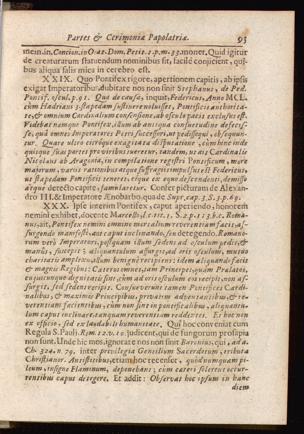 Partes & Cerimoniæ Papolatriæ. 93
mein.in. Concion.in Orat. Dom. Petit. 1.p.m.33.monet. Quid igitur
de creaturarum statuendum nominibus sit, facilè conjicient, qui-
bus aliqua salis mica in cerebro est.
XXIX. Quo Pontifex rigore, apertionem capitis, ab ipsis
exigat Imperatoribus, dubitare nos non sinit Stephanus, de Ped.
Pontif. oscul. p. 91. Qua de causa, inquit, Federicus, Anno MCL.
cum Hadriani 3. stapedam sustinere noluisset, Pontificis authorita-
te, & omnium Cardinalium consensione, ab osculo pacis exclusus est.
Videbat namque Pontifex, illum ab antiqua consuetudine deflecis-
se, qua omnes Imperatores Petri successori, ut pedissequi, obsequun-
tur. Quare ultro citroque exagitata disputatione, cùm hinc inde
quisque suas partes pro viribus tueretur, tandem, ut ait Cardinalis
Nicolaus ab Aragonia, in compilatione registri Pontificum, more
majorum, variis rationibus atque suffragiis impulsus est Federicus,
ut stapedam Pontificis teneret, eique ab equo descendenti, demisso
atque detecto capite, famularetur. Confer picturam de Alexan-
dro III. & Imperatore Ænobarbo, qua de Supr. cap. 3. S. 3. p. 49.
XXX. Ipse interim Pontifex, caput aperiendo, honorem
nemini exhibet, docente Marcello, l.c. tit. 1. S. 2. p. 113. b.c. Roma-
nus, ait, Pontifex nemini omnino mortalium reverentiam facit, as-
surgendo manifestè, aut caput inclinando, seu detegendo. Romano-
rum verò Imperatorem, postquam illum sedens ad osculum pedis, &
manûs, suscepit, aliquantulum assurgit, ad oris osculum, mutuo
charitatis amplexu, illum benignè recipiens: idem aliquando facit
& magnis Regibus: Cæteros omnes, tam Principes, quàm Prælatos,
cujuscunque dignitatis sint, cùm ad oris osculum eos recipit, non as-
surgit, sed sedens recipit. Consuevere tamen Pontifices Cardi-
nalibus, & maximis Principibus, privatim adventantibus, & re-
verentiam facientibus, cùm non sunt in pontificalibus, aliquantu-
lum caput inclinare, tanquam reverentiam reddentes. Et hoc non
ex officio, sed ex laudabili humanitate. Qui hoc conveniat cum
Regula S. Pauli Rom. 12. v. 10. judicent, qui de fungorum prosapia
non sunt. Unde hic mos, ignorare nos non sinit Baronius, qui, ad a.
Ch. 324. n. 79. inter privilegia Gentilium Sacerdotum, tributa
Christianor. Antistitibus, etiam hoc recenset, quòd nunquam pi-
leum, insigne Flaminum, deponebant, cùm cæteri solerent occur-
rentibus caput detegere. Et addit: Observat hoc ipsum in hanc
diem